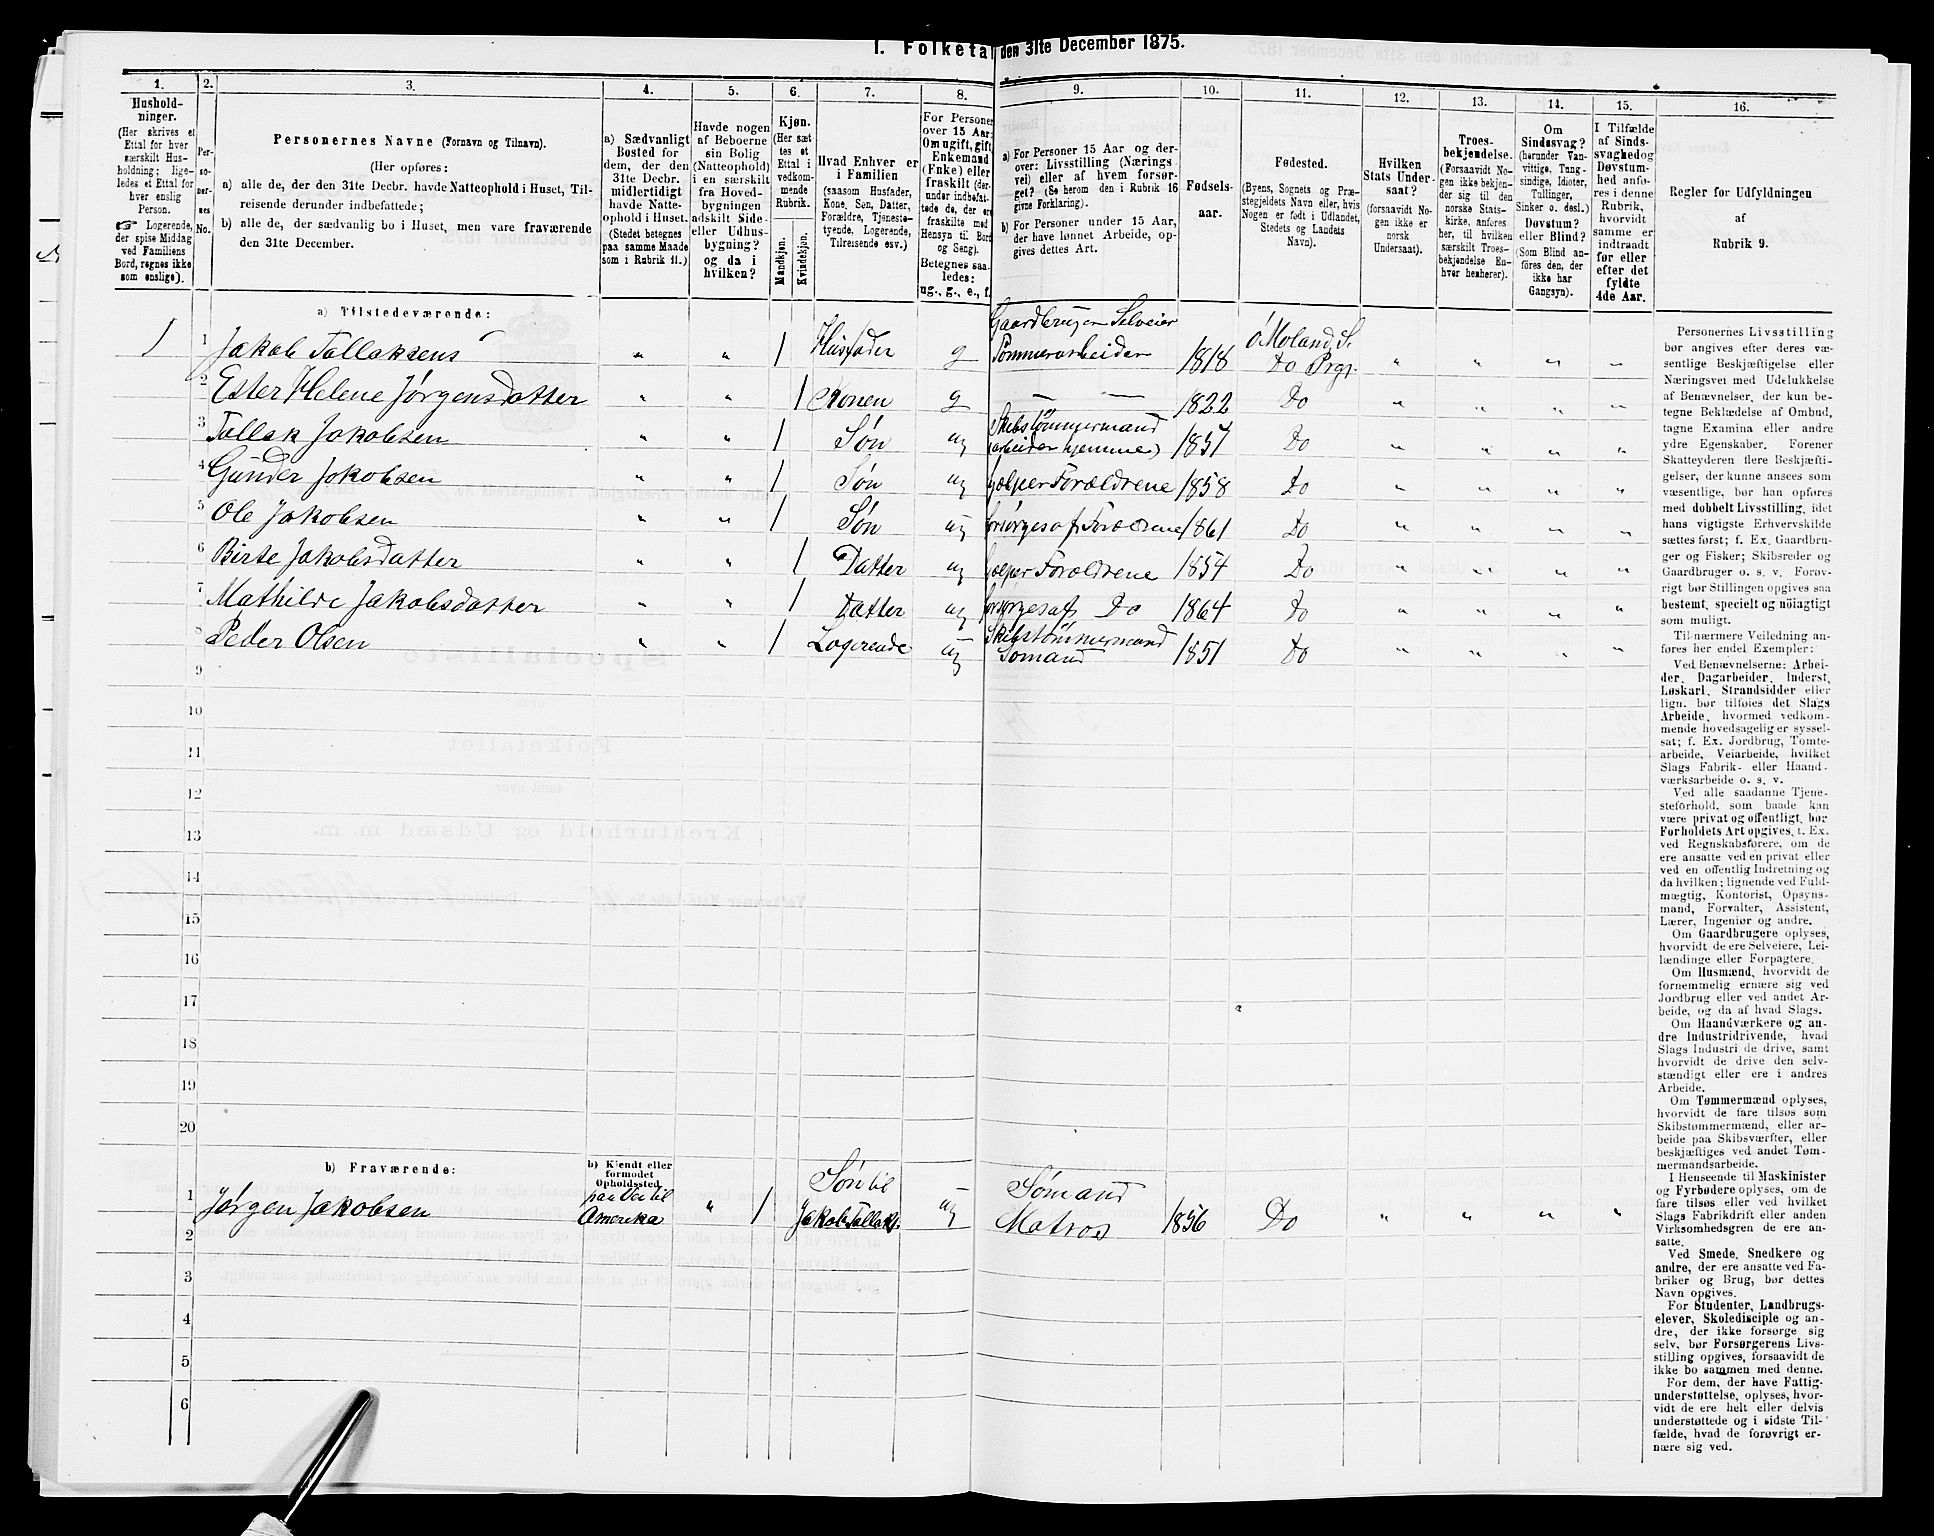 1. Folketal den 31te December 1875.
1. 2. 3. 4. 5. 6. 7. 8. 9. 10. 11. 12. 13. 14. 15. 16.
Hushold-
ninger.
(Her skrives et
Ettal for hver
særskilt Hus-
holdning; lige-
ledes et Ettal for
hver enslig
Person.
☞ Logerende,
der spise Middag
ved Familiens
Bord, regnes ikke
som enslige).
Per-
so-
ner-
nes
No.
Personernes Navne (Fornavn og Tilnavn).
(Her opføres:
a) alle de, der den 31te Decbr. havde Natteophold i Huset, Til-
reisende derunder indbefattede;
b) alle de, der sædvanlig bo i Huset, men vare fraværende
den 31te December.
a) Sædvanligt
Bosted for
dem, der den
31te Decbr.
midlertidigt
havde Natte-
ophold i Huset.
(Stedet betegnes
paa samme Maade
som i Rubrik 11.)
Havde nogen
af Beboerne
sin Bolig
(Natteophold)
i en særskilt
fra Hoved-
bygningen
adskilt Side-
eller Udhus-
bygning?
og da i
hvilken?
Kjøn.
(Her sæt-
tes et
Ettal i
vedkom-
mende
Rubrik.
Mandkjøn.
Kvindekjøn.
Hvad Enhver er
i Familien
(saasom Husfader,
Kone, Søn, Datter,
Forældre, Tjeneste-
tyende, Logerende,
Tilreisende osv.)
For Personer
over 15 Aar:
Om ugift, gift,
Enkemand
(Enke) eller
fraskilt (der-
under indbefat-
tede de, der ere
fraskilte med
Hensyn til Bord
og Seng).
Betegnes saa-
ledes:
ug., g., e., f.
a) For Personer 15 Aar og der-
over: Livsstilling (Nærings
vei) eller af hvem forsør-
get? (Se herom den i Rubrik 16
givne Forklaring).
b) For Personer under 15 Aar,
der have lønnet Arbeide, op-
gives dettes Art.
Fødsels-
aar.
Fødested.
(Byens, Sognets og Præ-
stegjeldets Navn eller, hvis
Nogen er født i Udlandet,
Stedets og Landets
Navn).
Hvilken
Stats Under-
saat?
(forsaavidt No-
gen ikke er
norsk
Undersaat).
Troes-
bekjendelse.
(Forsaavidt No-
gen ikke bekjen-
der sig til den
norske Stats-
kirke, anføres
her, til hvilken
særskilt Troes-
bekjendelse En-
hver henhører).
Om
Sindssvag?
(herunder Van-
vittige, Tung-
sindige, Idioter,
Tullinger,
Sinker o. desl.)
Døvstum?
eller Blind?
(Som Blind an-
føres den, der
ikke har
Gangsyn).
I Tilfælde
af Sinds-
svaghed og
Døvstum-
hed anfø-
res i denne
Rubrik,
hvorvidt
samme er
indtraadt
før eller
efter det
fyldte
4de Aar.
Regler for Udfyldningen
af
Rubrik 9.
a) Tilstedeværende:
1 1 Jakob Tallaksens " " 1 Husfader g Gaardbruger Selveier
Tømmerarbeider 1818 Ø. Moland, S.
Do Prgj. " " " "
2 Ester Helene Jørgensdatter " " 1 Konen g — — 1822 Do " " " "
3 Tallak Jakobsen " " 1 Søn ug Skibstømmermand
(arbeider hjemme) 1857 Do " " " "
4 Gunder Jakobsen " " 1 Søn ug hjelper Forældrene 1858 Do " " " "
5 Ole Jakobsen " " 1 Søn ug forsørges af Forældrene 1861 Do " " " "
6 Birte Jakobsdatter " " 1 Datter ug hjelper Forældrene 1854 Do " " " "
7 Mathilde Jakobsdatter " " 1 Datter ug forsørges af Do 1864 Do " " " "
8 Peder Olsen " " 1 Logerende ug Skibstømmermand
Sømand 1851 Do " " " "
9
10
11
12
13
14
15
16
17
18
19
20
b) Fraværende:
b) Kjendt eller
formodet
Opholdssted.
1 Jørgen Jakobsen paa Vei til
Amerika " 1 Søn til
Jakob Tallaks. ug Sømand
Matros 1856 Do " " " "
2
3
4
5
6
Personernes Livsstilling
bør angives efter deres væ-
sentlige Beskjæftigelse eller
Næringsvei med Udelukkelse
af Benævnelser, der kun be-
tegne Beklædelse af Ombud,
tagne Examina eller andre
ydre Egenskaber. Forener
Skatteyderen flere Beskjæfti-
gelser, der kunne ansees som
væsentlige, bør han opføres
med dobbelt Livsstilling, idet
hans vigtigste Erhvervskilde
sættes først; f. Ex. Gaardbru-
ger og Fisker; Skibsreder og
Gaardbruger o. s. v. Forøv-
rigt bør Stillingen opgives saa
bestemt, specielt og nöiagtigt
som muligt.
Til nærmere Veiledning an-
føres her endel Exempler:
Ved Benævnelserne: Arbei-
der, Dagarbeider, Inderst,
Løskarl, Strandsidder eller
lign. bør tilføies det Slags
Arbeide, hvormed vedkom-
mende hovedsagelig er syssel-
sat; f. Ex. Jordbrug, Tomte-
arbeide, Veiarbeide, hvilket
Slags Fabrik- eller Haand-
værksarbeide o. s. v.
Ved alle saadanne Tjene-
steforhold, som baade kan
være privat og offentligt, bør
Forholdets Art opgives, t. Ex.
ved Regnskabsførere, om de
ere ansatte ved en privat eller
ved en offentlig Indretning og
da hvilken; lignende ved Fuld-
mægtig, Kontorist, Opsyns-
mand, Forvalter, Assistent,
Lærer, Ingeniør og andre.
Om Gaardbrugere oplyses,
hvorvidt de ere Selveiere, Lei-
lændinge eller Forpagtere.
Om Husmænd, hvorvidt de
fornemmelig ernære sig ved
Jordbrug eller ved andet Ar-
beide, og da af hvad Slags.
Om Haandværkere og an-
dre Industridrivende, hvad
Slags Industri de drive, samt
hvorvidt de drive den selv-
stændigt eller ere i andres
Arbeide.
Om Tømmermænd oplyses,
hvorvidt de fare tilsøs som
Skibstømmermænd, eller ar-
beide paa Skibsværfter, eller
beskjæftiges ved andet Tøm-
mermandsarbeide.
I Henseende til Maskinister
og Fyrbødere oplyses, om de
fare tilsøs eller ved hvilket
Slags Fabrikdrift eller anden
Virksomhedsgren de ere an-
satte.
Ved Smede, Snedkere og
andre, der ere ansatte ved Fa-
briker og Brug, bør dettes
Navn opgives.
For Studenter, Landbrugs-
elever, Skoledisciple og an-
dre, der ikke forsørge sig
selv, bør Forsørgerens Livs-
stilling opgives, forsaavidt de
ikke bo sammen med denne.
For dem, der have Fattig-
understøttelse, oplyses, hvor-
vidt de ere helt eller delvis
understøttede og i sidste Til-
fælde, hvad de forøvrigt er-
nære sig ved.